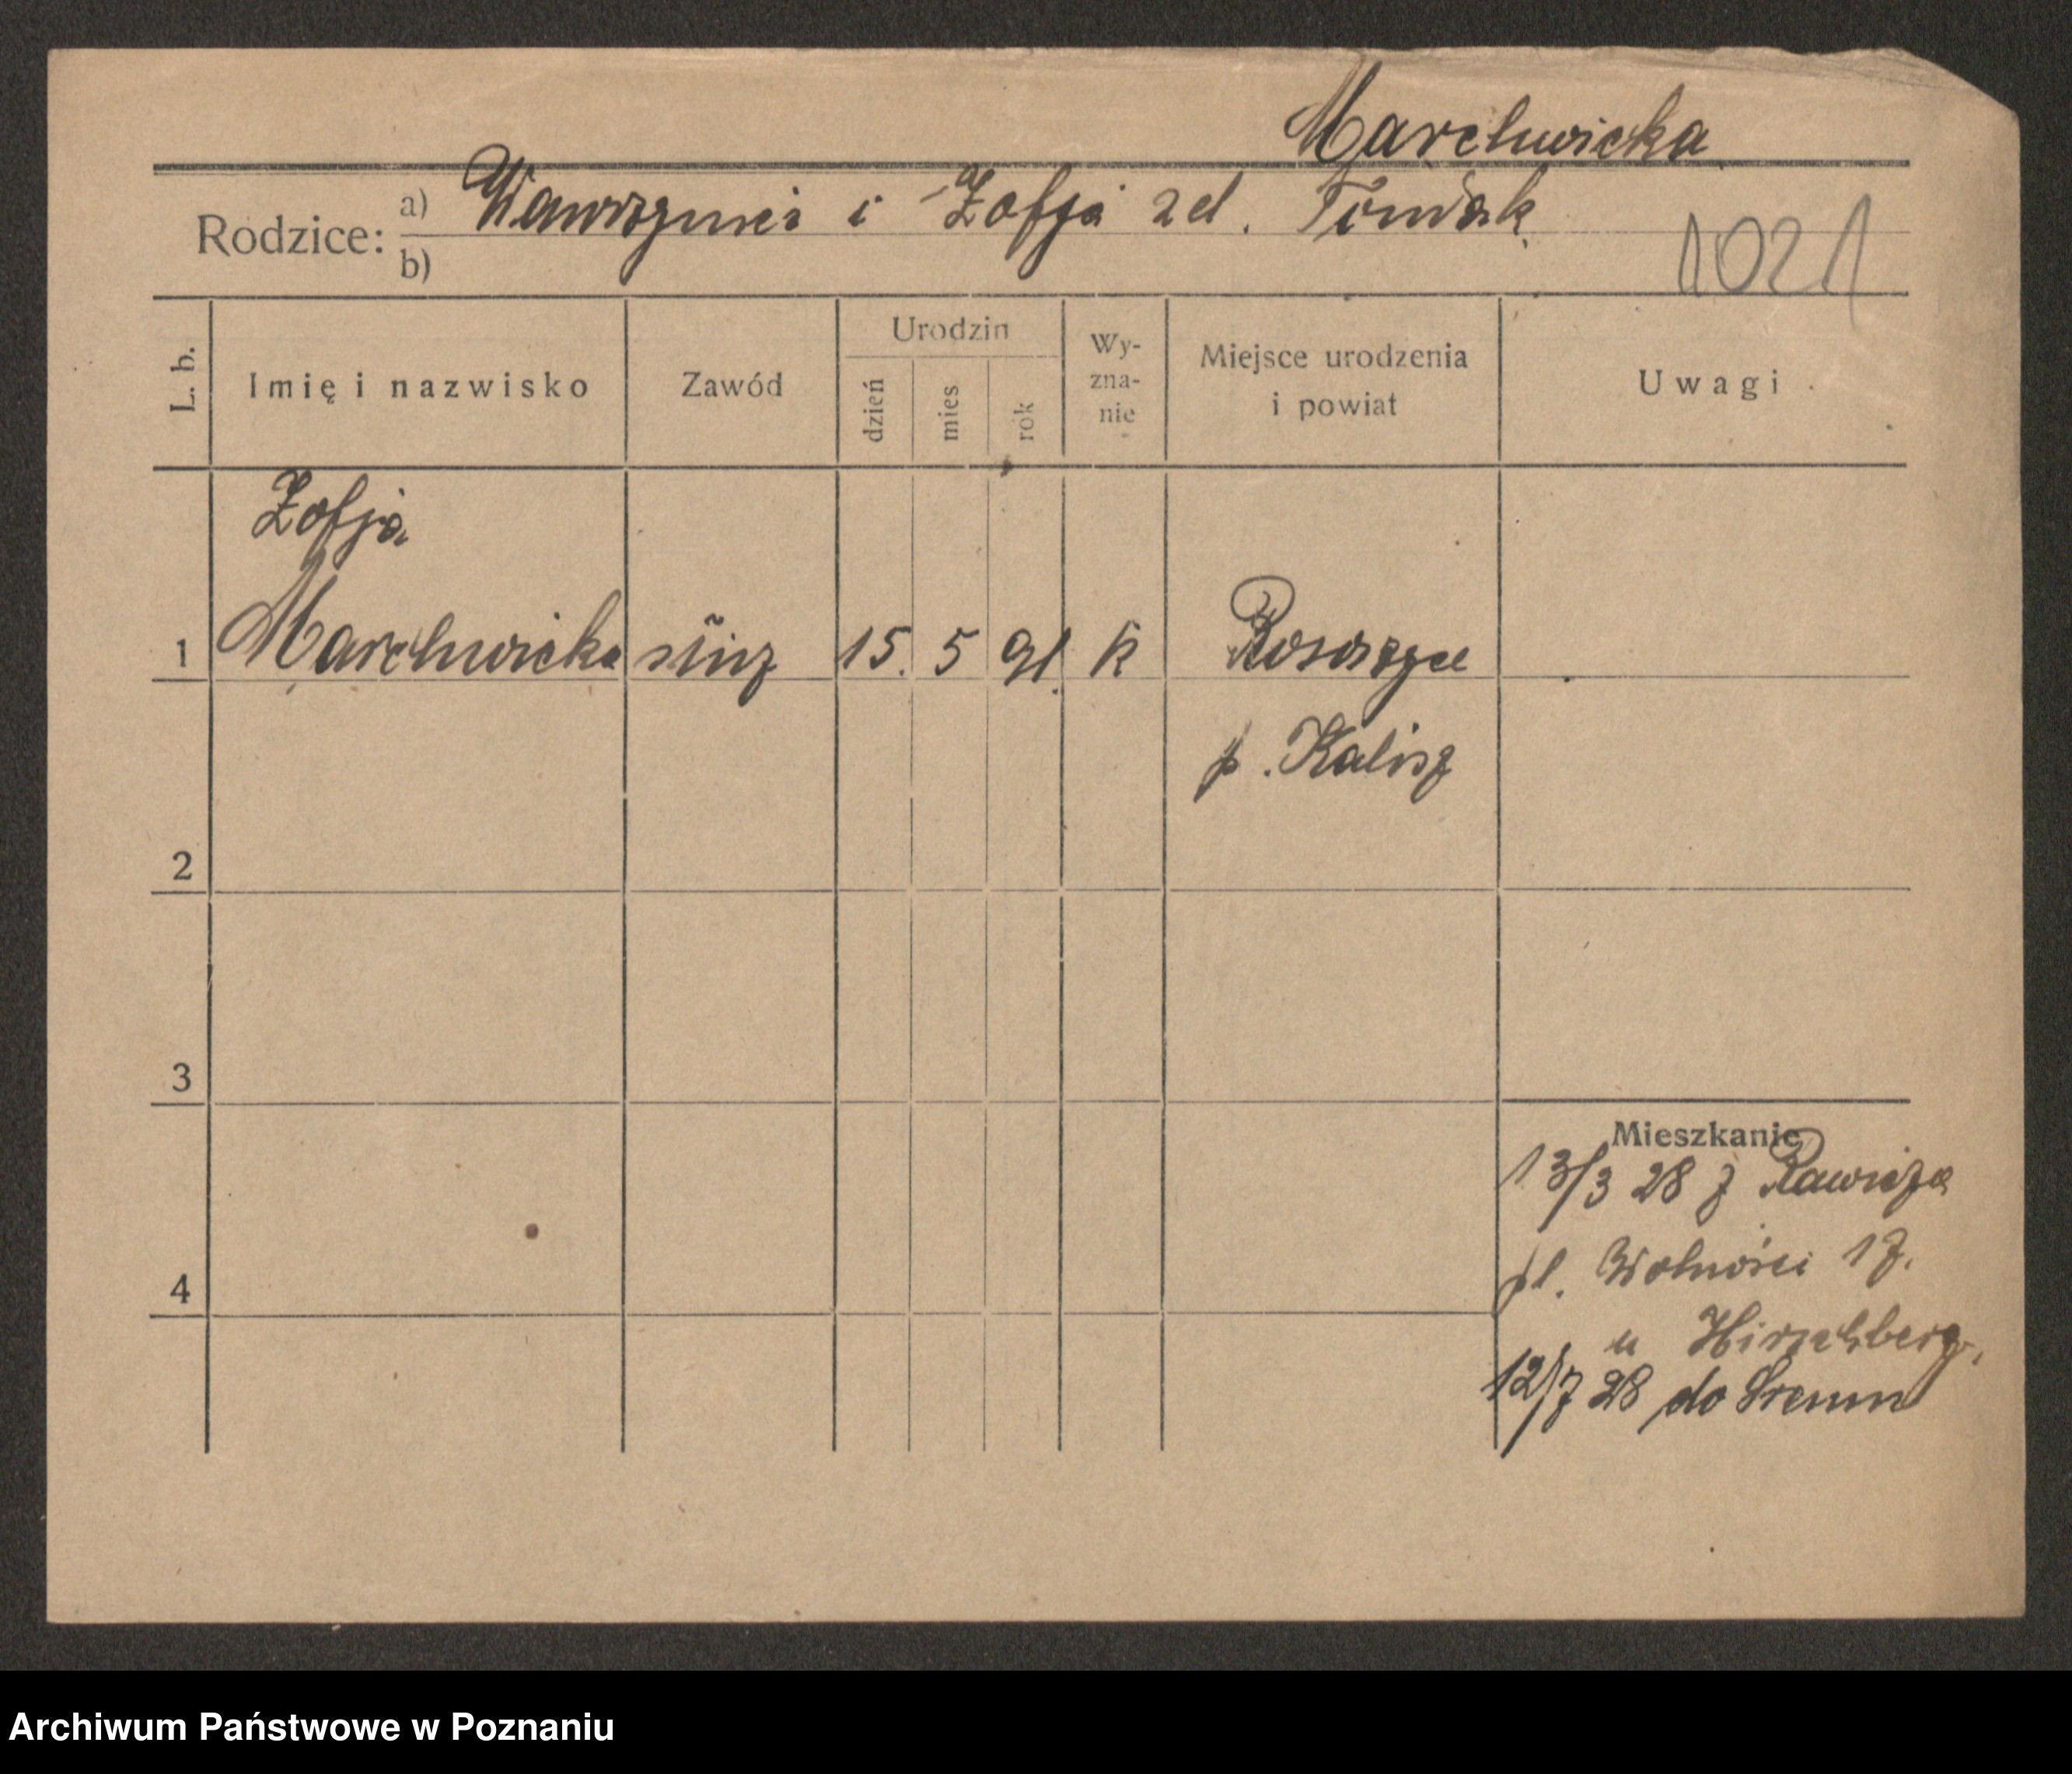 Marchwicka
Rodzice: a) Wawrzyniec i Zofja zd. Tomiak
b)
1021
L. b. Imię i nazwisko Zawód Urodzin dzień mies rok Wy-zna-nie Miejsce urodzenia i powiat Uwagi
Zofja
1 Marchwicka służ 15. 5 91. k
p. Kalisz
2
3
Mieszkanie
13/3 28 z Rawicza
pl. Wolności 17.
4
u Hirschberg.
12/7 28 do Śremu
Archiwum Państwowe w Poznaniu